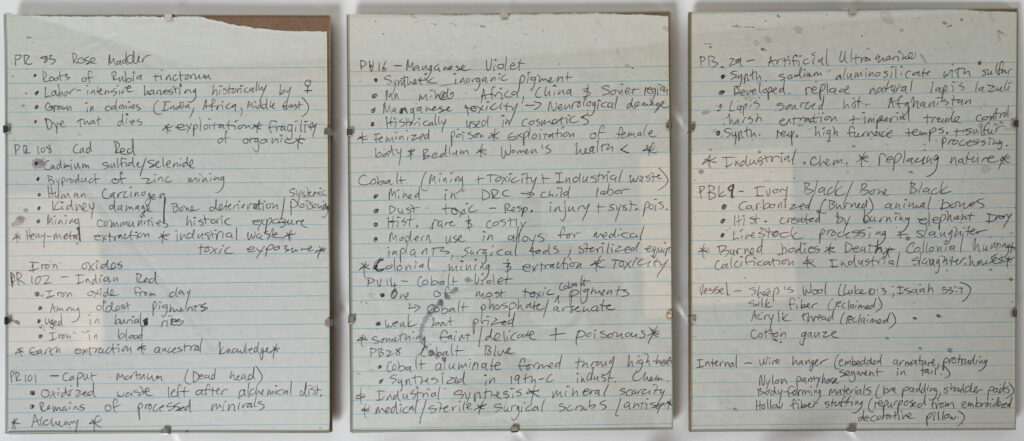 PR 83 Rose Madder
• Roots of Rubia tinctorum
• Labor-intensive harvesting historically by ♀
• Grown in colonies (India, Africa, Middle East)
• Dye that dies *exploitation* fragility
of organic*
PR 108 Cad Red
• Cadmium sulfide/selenide
• Byproduct of zinc mining
• Human Carcinogen
• Kidney damage / Bone deterioration / Systemic Poisoning
• Mining communities historic exposure
*Heavy-metal extraction * industrial waste*
toxic exposure*
Iron oxides
PR 102 - Indian Red
• Iron oxide from clay
• Among oldest pigments
• Used in burial rites
• Iron in blood
* Earth extraction * ancestral knowledge*
PR101 - Caput Mortuum (Dead head)
• Oxidized waste left after alchemical dist.
• Remains of processed minerals
* Alchemy *
PV16 - Manganese Violet
• Synthetic inorganic pigment
• Mn mined Africa, China & Soviet region
• Manganese toxicity → Neurological damage
• Historically used in cosmetics
* Feminized poison * Exploitation of female
body * Bedlum * Women's health < *
Cobalt (Mining + Toxicity + Industrial waste)
• Mined in DRC → child labor
• Dust toxic - Resp. injury + syst. pois.
• Hist. rare & costly
• Modern use in alloys for medical
implants, surgical tools, sterilized equip
* Colonial mining & extraction * Toxicity
PV14 - Cobalt Violet
• One of most toxic cobalt pigments
↳ cobalt phosphate/arsenate
• weak but prized
* Something faint/delicate + poisonous *
PB28 Cobalt Blue
• Cobalt aluminate formed throug high heat
• Synthesized in 19th-c indust. Chem.
* Industrial synthesis * mineral scarcity
* medical/sterile * surgical scrubs /antisep*
PB 29 - Artificial Ultramarine
• Synth sodium aluminosilicate with sulfur
• Developed replace natural lapis lazuli
• Lapis sourced hist. Afghanistan
harsh extration + imperial trade control
• Synth. req. high furnace temps. + sulfur
processing.
* Industrial Chem. * replacing nature *
PBk9 - Ivory Black/Bone Black
• Carbonized (Burned) animal bones
• Hist. created by burning elephant Ivory
• Livestock processing & slaughter
* Burned bodies * Death * Collonial hunting
Calcification * Industrial slaughterhouses*
Vessel - Sheep's Wool (Luke 15:3; Isaiah 53:7)
Silk fiber (Reclaimed)
Acrylic thread (Reclaimed)
Cotton gauze
Internal - Wire hanger (embedded armature, protruding
segment in tail)
Nylon pantyhose
Body-forming materials (bra padding, shoulder pads)
Hollow fiber stuffing (repurposed from embroidered
decorative pillow)